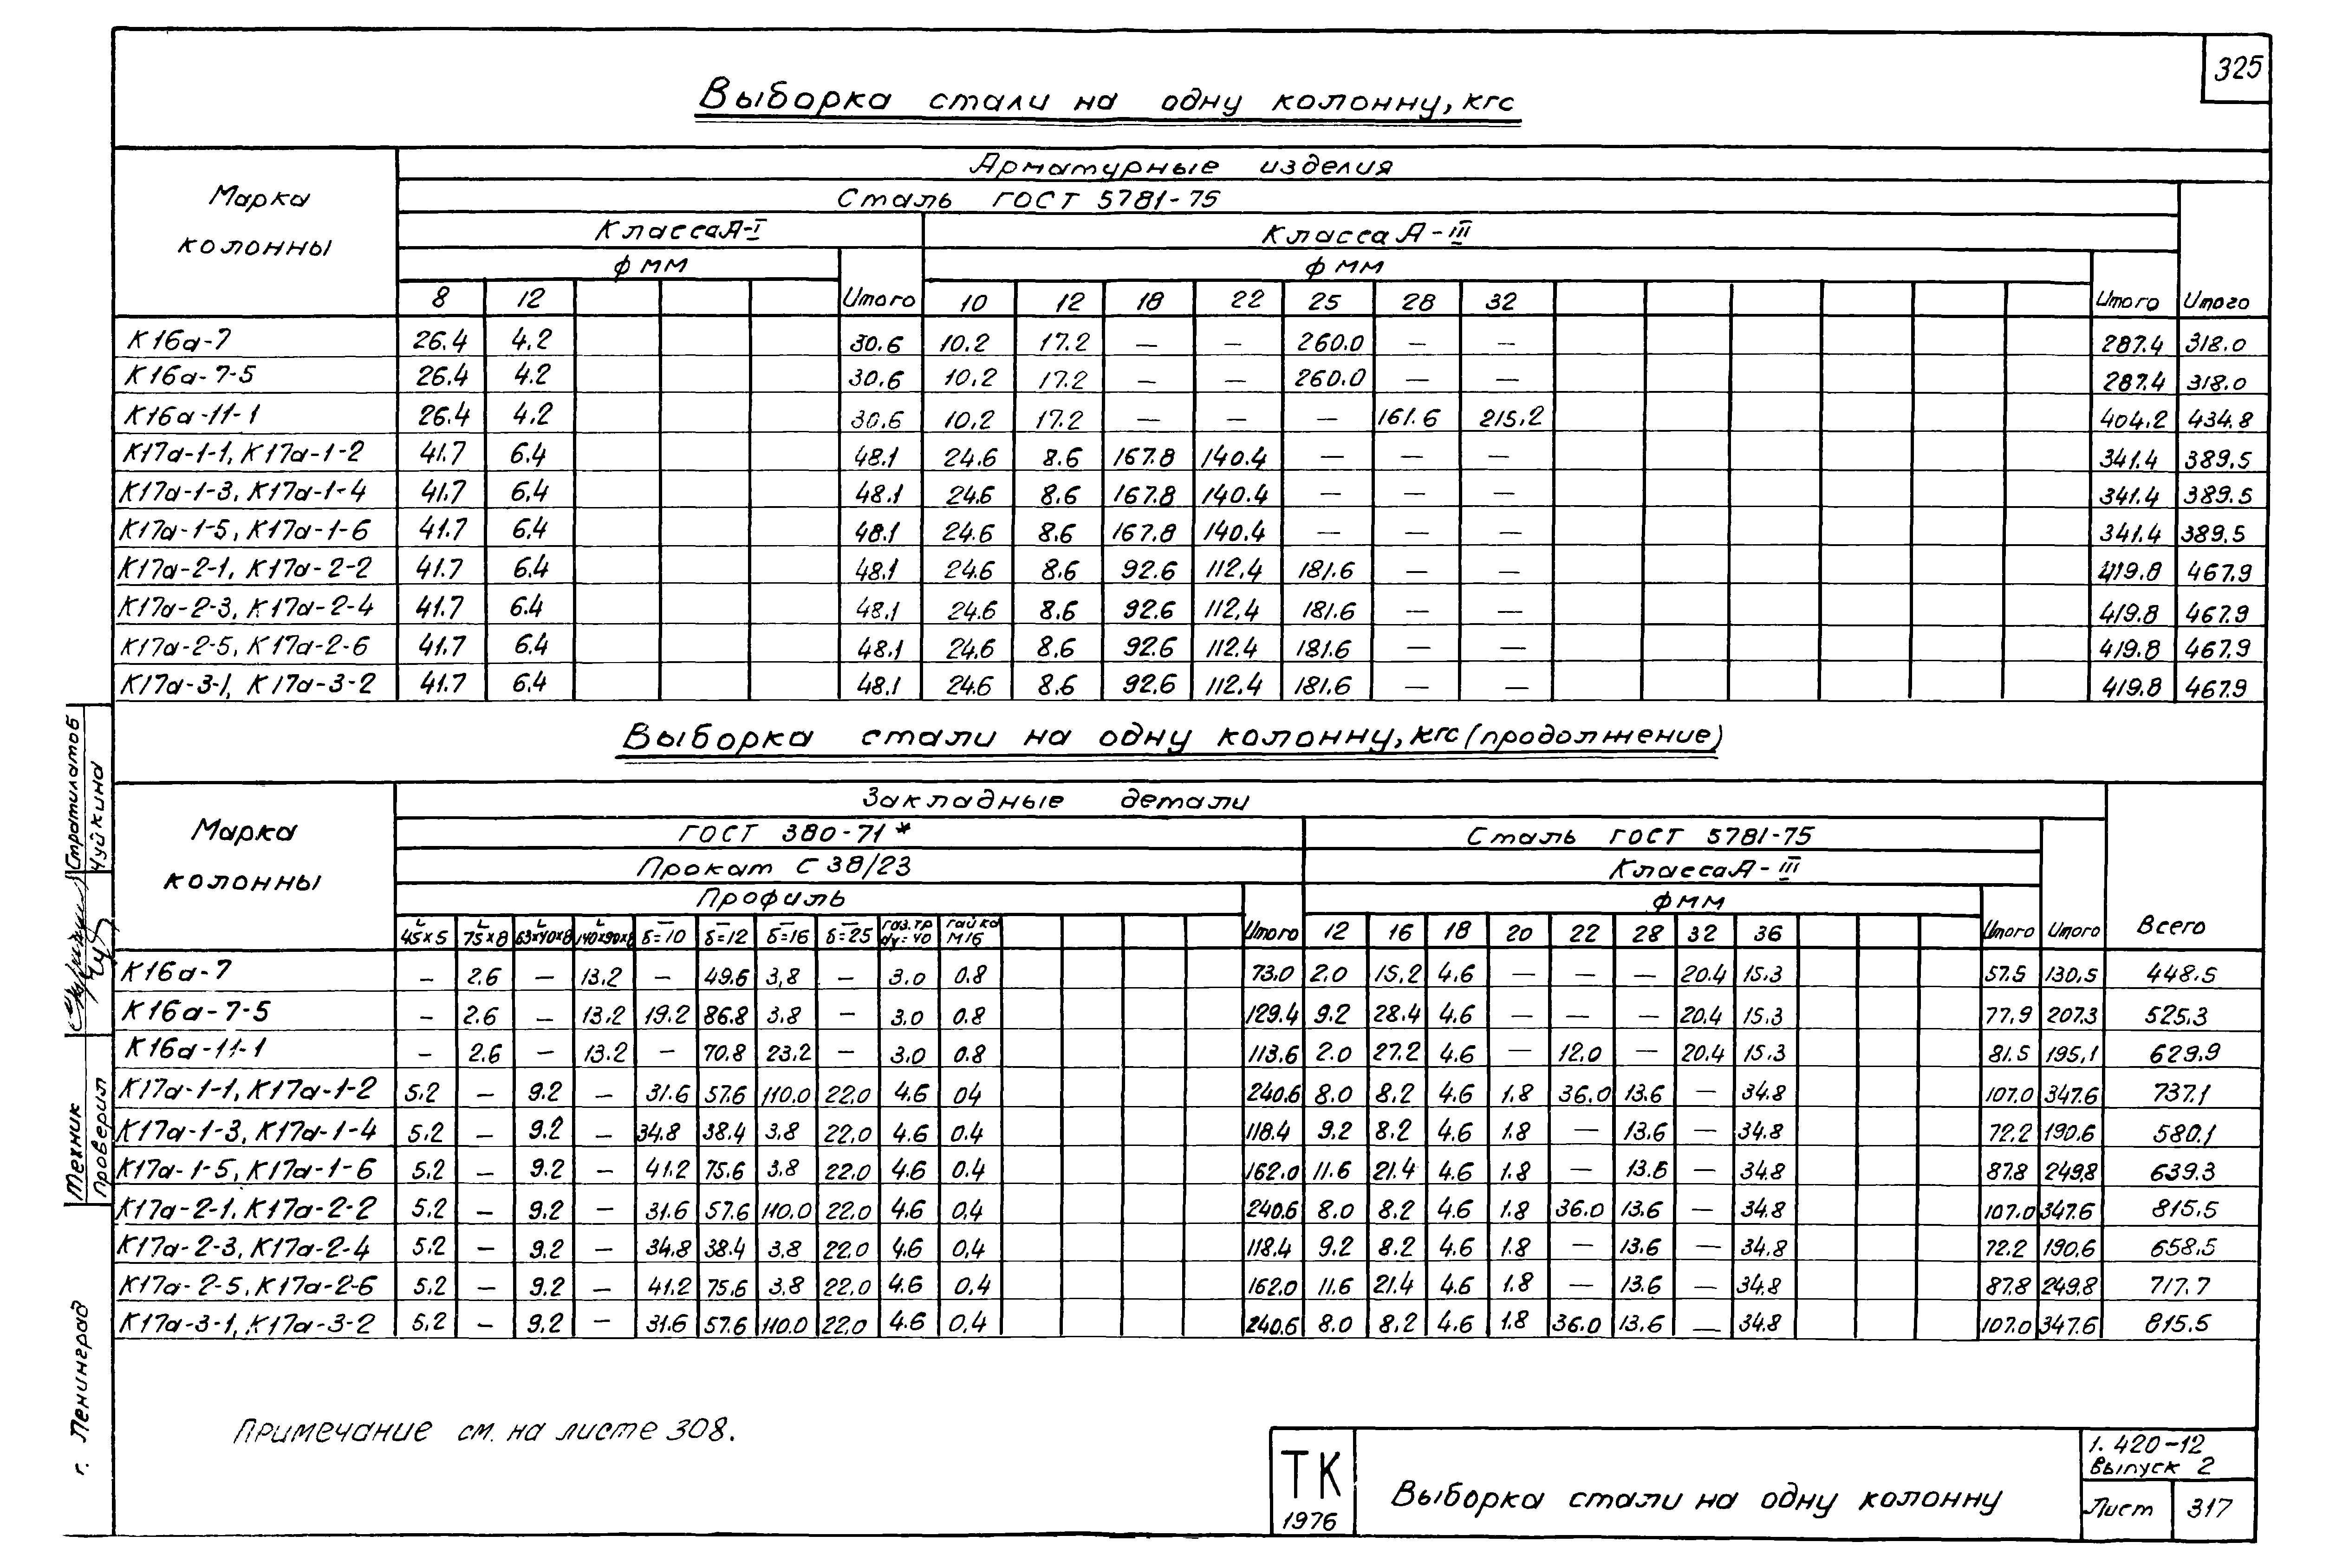 325
Выборка стали на одну колонну, кгс
Марка колонны
Арматурные изделия
Сталь ГОСТ 5781-75
Класса А-I
Класса А-III
Ф мм
Ф мм
8 12 Итого 10 12 18 22 25 28 32 Итого Итого
К16а-7 26.4 4.2 30.6 10.2 17.2 — — 260.0 — — 287.4 318.0
К16а-7-5 26.4 4.2 30.6 10.2 17.2 — — 260.0 — — 287.4 318.0
К16а-11-1 26.4 4.2 30.6 10.2 17.2 — — — 161.6 215.2 404.2 434.8
К17а-1-1, К17а-1-2 41.7 6.4 48.1 24.6 8.6 167.8 140.4 — — — 341.4 389.5
К17а-1-3, К17а-1-4 41.7 6.4 48.1 24.6 8.6 167.8 140.4 — — — 341.4 389.5
К17а-1-5, К17а-1-6 41.7 6.4 48.1 24.6 8.6 167.8 140.4 — — — 341.4 389.5
К17а-2-1, К17а-2-2 41.7 6.4 48.1 24.6 8.6 92.6 112.4 181.6 — — 419.8 467.9
К17а-2-3, К17а-2-4 41.7 6.4 48.1 24.6 8.6 92.6 112.4 181.6 — — 419.8 467.9
К17а-2-5, К17а-2-6 41.7 6.4 48.1 24.6 8.6 92.6 112.4 181.6 — — 419.8 467.9
К17а-3-1, К17а-3-2 41.7 6.4 48.1 24.6 8.6 92.6 112.4 181.6 — — 419.8 467.9
Выборка стали на одну колонну, кгс (продолжение)
Марка колонны
Закладные детали
ГОСТ 380-71*
Сталь ГОСТ 5781-75
Прокат С 38/23
Класса А-III
Профиль
Ф мм
Всего
L 45×5 L 75×8 L 63×40×8 L 140×90×8 — δ=10 — δ=12 — δ=16 — δ=25 газ.тр dу=40 гайка М16 Итого 12 16 18 20 22 28 32 36 Итого Итого
К16а-7 — 2.6 — 13.2 — 49.6 3.8 — 3.0 0.8 73.0 2.0 15.2 4.6 — — — 20.4 15.3 57.5 130.5 448.5
К16а-7-5 — 2.6 — 13.2 19.2 86.8 3.8 — 3.0 0.8 129.4 9.2 28.4 4.6 — — — 20.4 15.3 77.9 207.3 525.3
К16а-11-1 — 2.6 — 13.2 — 70.8 23.2 — 3.0 0.8 113.6 2.0 27.2 4.6 — 12.0 — 20.4 15.3 81.5 195.1 629.9
К17а-1-1, К17а-1-2 5.2 — 9.2 — 31.6 57.6 110.0 22.0 4.6 04 240.6 8.0 8.2 4.6 1.8 36.0 13.6 — 34.8 107.0 347.6 737.1
К17а-1-3, К17а-1-4 5.2 — 9.2 — 34.8 38.4 3.8 22.0 4.6 0.4 118.4 9.2 8.2 4.6 1.8 — 13.6 — 34.8 72.2 190.6 580.1
К17а-1-5, К17а-1-6 5.2 — 9.2 — 41.2 75.6 3.8 22.0 4.6 0.4 162.0 11.6 21.4 4.6 1.8 — 13.6 — 34.8 87.8 249.8 639.3
К17а-2-1, К17а-2-2 5.2 — 9.2 — 31.6 57.6 110.0 22.0 4.6 0.4 240.6 8.0 8.2 4.6 1.8 36.0 13.6 — 34.8 107.0 347.6 815.5
К17а-2-3, К17а-2-4 5.2 — 9.2 — 34.8 38.4 3.8 22.0 4.6 0.4 118.4 9.2 8.2 4.6 1.8 — 13.6 — 34.8 72.2 190.6 658.5
К17а-2-5, К17а-2-6 5.2 — 9.2 — 41.2 75.6 3.8 22.0 4.6 0.4 162.0 11.6 21.4 4.6 1.8 — 13.6 — 34.8 87.8 249.8 717.7
К17а-3-1, К17а-3-2 5.2 — 9.2 — 31.6 57.6 110.0 22.0 4.6 0.4 240.6 8.0 8.2 4.6 1.8 36.0 13.6 — 34.8 107.0 347.6 815.5
Примечание см. на листе 308.
ТК
1976
Выборка стали на одну колонну
1.420-12
Выпуск 2
Лист 317
Техник Стратилатов
Проверил Чуйкина
г. Ленинград